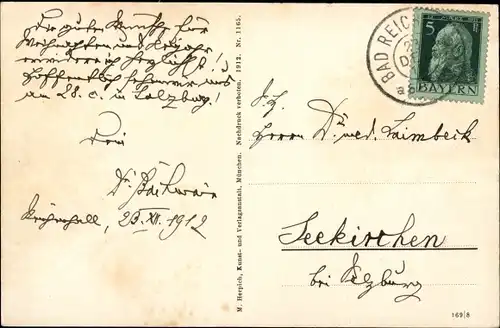 Die guten Wünsche für
Weihnachten und Neujahr
erwidere ich herzlichst!
Hoffentlich sehen wir uns
am 28. c. in Salzburg!
Dein
Dr.
Reichenhall, 23.XII.1912
M. Herpich, Kunst- und Verlagsanstalt, München. Nachdruck verboten. 1912. Nr. 1165.
BAD REICH
5 Pf
BAYERN
Herrn Dr. med. Laimbeck
Seekirchen
bei Salzburg
169/8